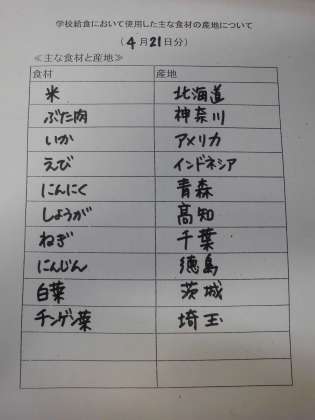 学校給食において使用した主な食材の産地について
(4月21日分)
≪主な食材と産地≫
食材 産地
米 北海道
ぶた肉 神奈川
いか アメリカ
えび インドネシア
にんにく 青森
しょうが 高知
ねぎ 千葉
にんじん 徳島
白菜 茨城
チンゲン菜 埼玉